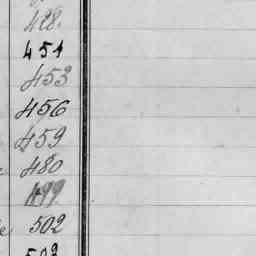 428
454
453
456
459
480
499
502
503